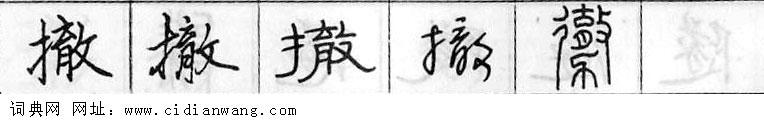 撤 撤 撤 撤
词典网 网址：www.cidianwang.com